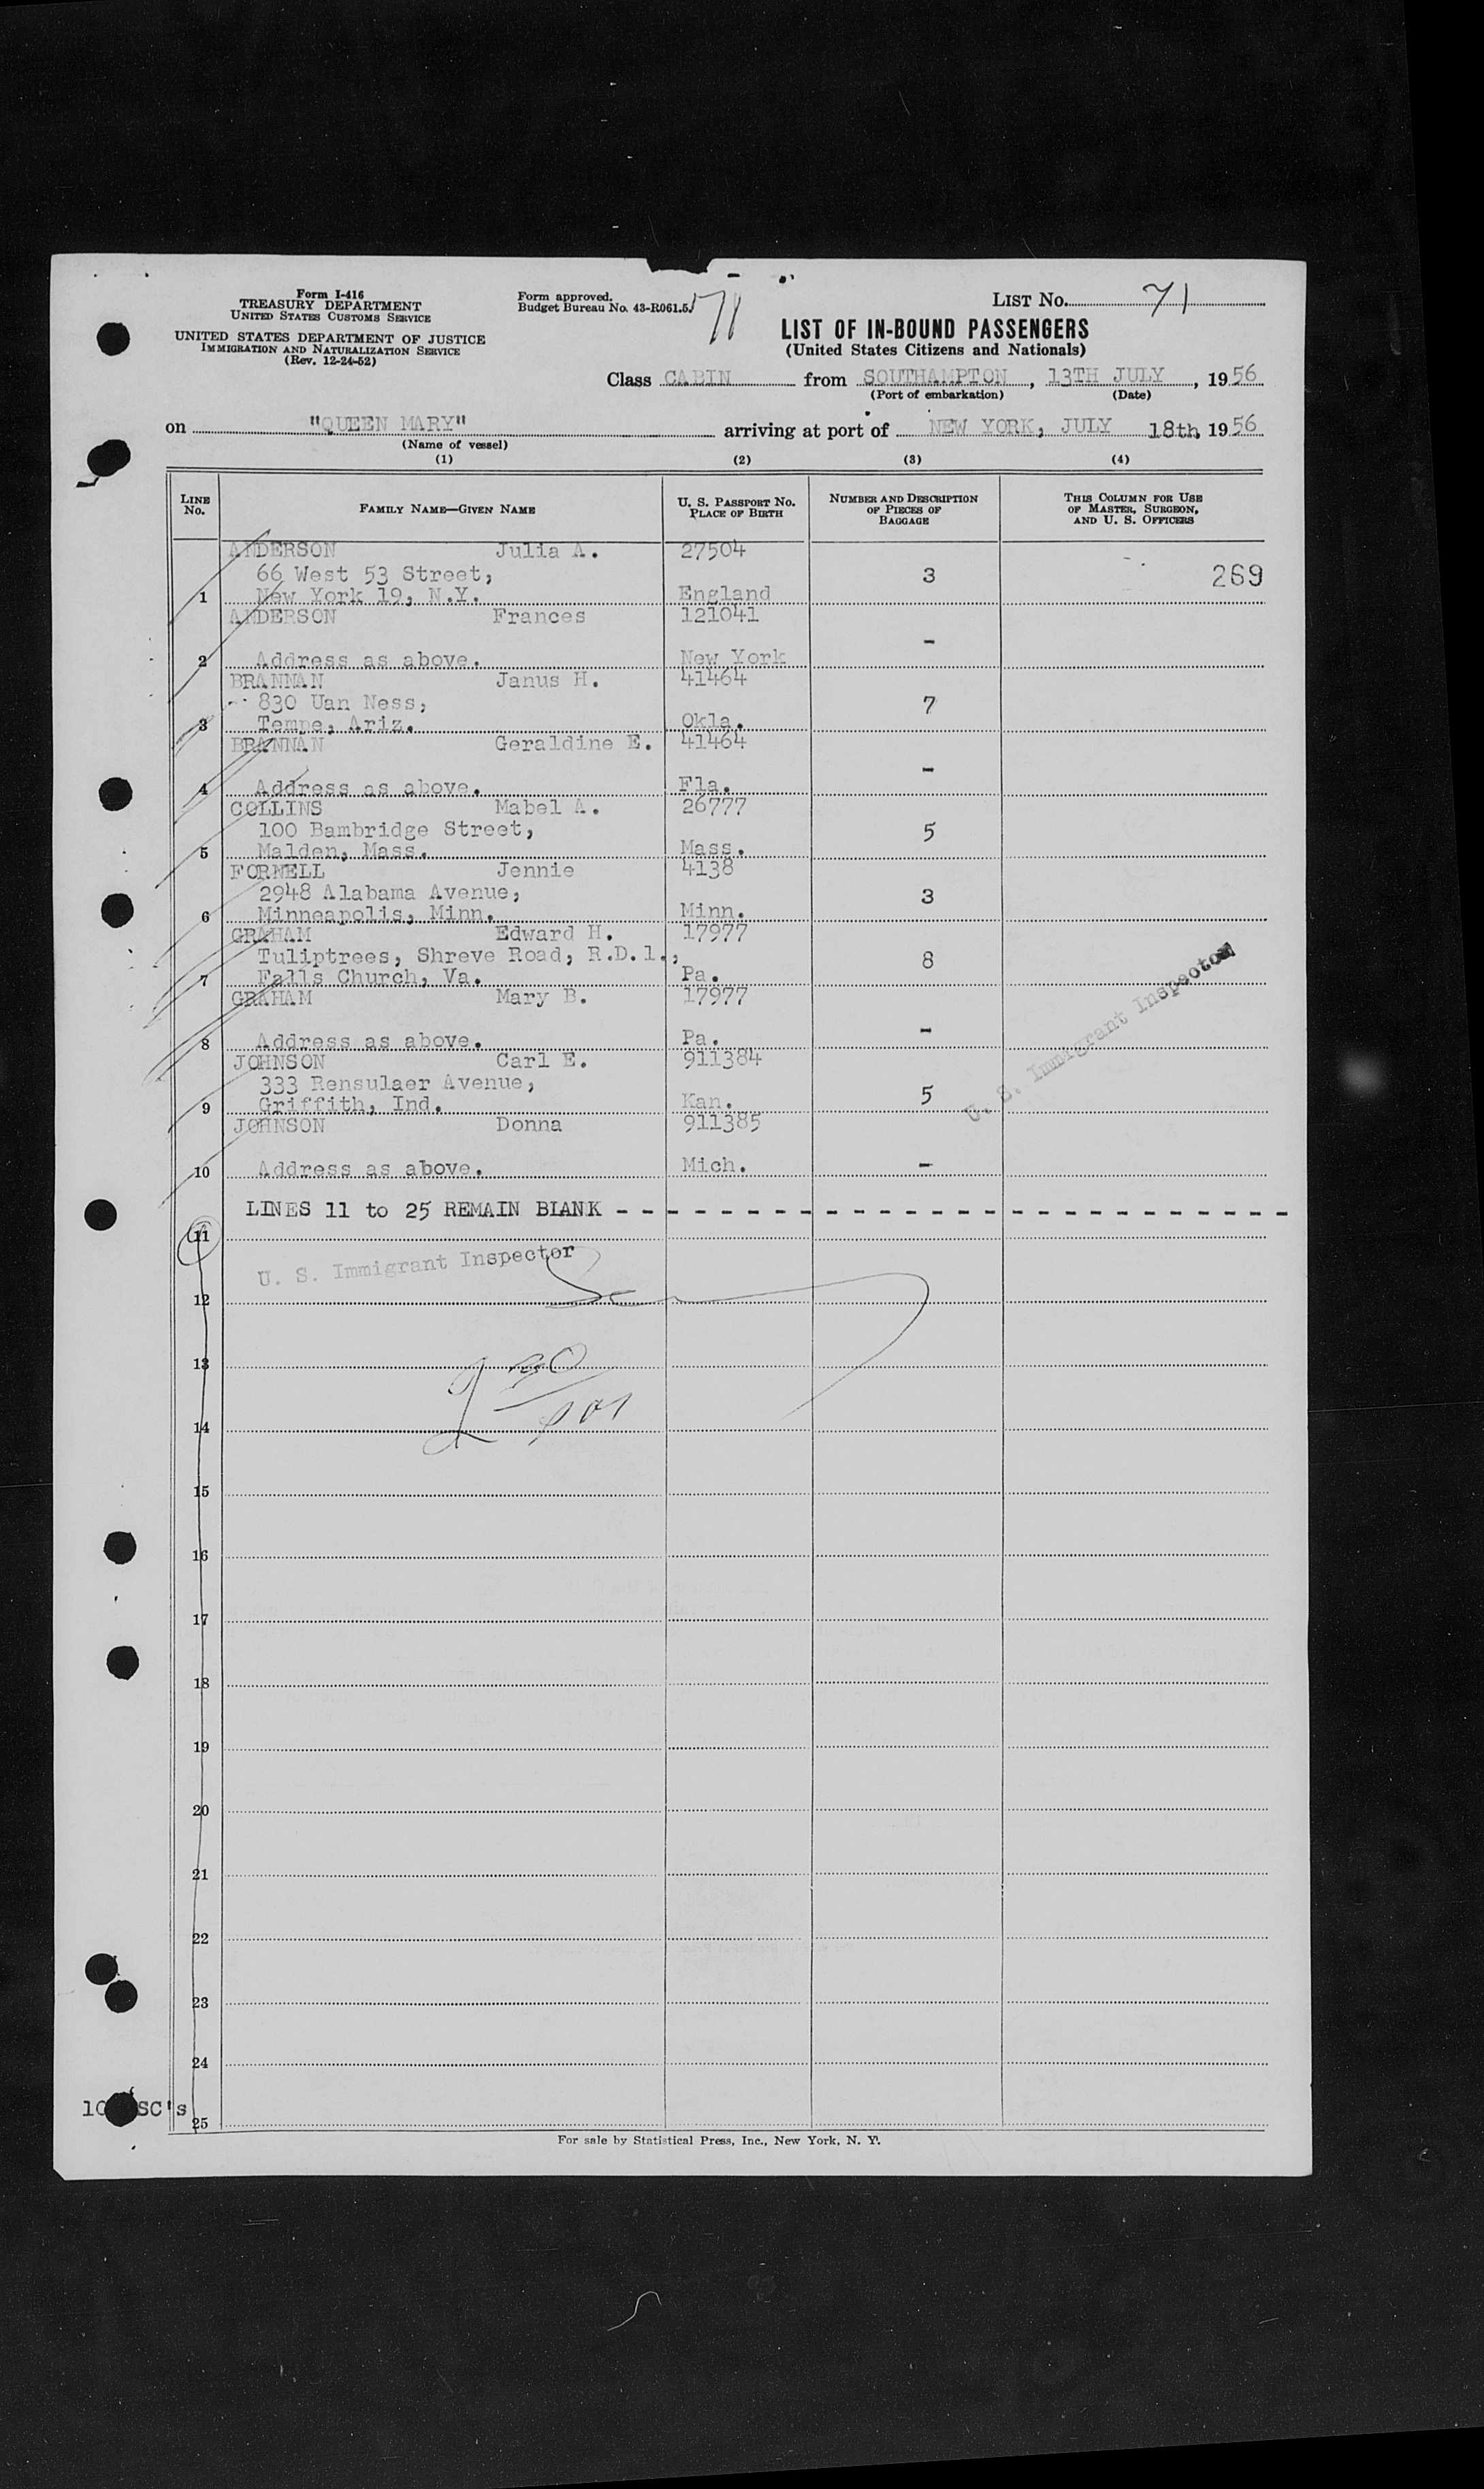 Form I-416
TREASURY DEPARTMENT
UNITED STATES CUSTOMS SERVICE
UNITED STATES DEPARTMENT OF JUSTICE
IMMIGRATION AND NATURALIZATION SERVICE
(Rev. 12-24-52)
Form approved.
Budget Bureau No. 43-R061.5.
LIST No. 71
LIST OF IN-BOUND PASSENGERS
(United States Citizens and Nationals)
Class CABIN from SOUTHAMPTON, 13TH JULY, 1956
(Port of embarkation) (Date)
on "QUEEN MARY" arriving at port of NEW YORK, JULY 18th, 1956
(Name of vessel)
(1) (2) (3) (4)
LINE No. FAMILY NAME—GIVEN NAME U. S. PASSPORT No. PLACE OF BIRTH NUMBER AND DESCRIPTION OF PIECES OF BAGGAGE THIS COLUMN FOR USE OF MASTER, SURGEON, AND U. S. OFFICERS
ANDERSON Julia A. 27504
66 West 53 Street, 3 269
1 New York 19, N.Y. England
ANDERSON Frances 121041
-
2 Address as above. New York
BRANNAN Janus H. 41464
830 Uan Ness, 7
3 Tempe, Ariz. Okla.
BRANNAN Geraldine E. 41464
-
4 Address as above. Fla.
COLLINS Mabel A. 26777
100 Bambridge Street, 5
5 Malden, Mass. Mass.
FORNELL Jennie 4138
2948 Alabama Avenue, 3
6 Minneapolis, Minn. Minn.
GRAHAM Edward H. 17977
Tuliptrees, Shreve Road, R.D.1., 8
7 Falls Church, Va. Pa.
GRAHAM Mary B. 17977
-
8 Address as above. Pa.
JOHNSON Carl E. 911384
333 Rensulaer Avenue, 5
9 Griffith, Ind. Kan.
JOHNSON Donna 911385
10 Address as above. Mich. -
U. S. Immigrant Inspector
LINES 11 to 25 REMAIN BLANK - - - - - - - - - - - - - - - - - - - - - - - - - - -
11
U. S. Immigrant Inspector
12
13
14
15
16
17
18
19
20
21
22
23
24
25
For sale by Statistical Press, Inc., New York, N. Y.